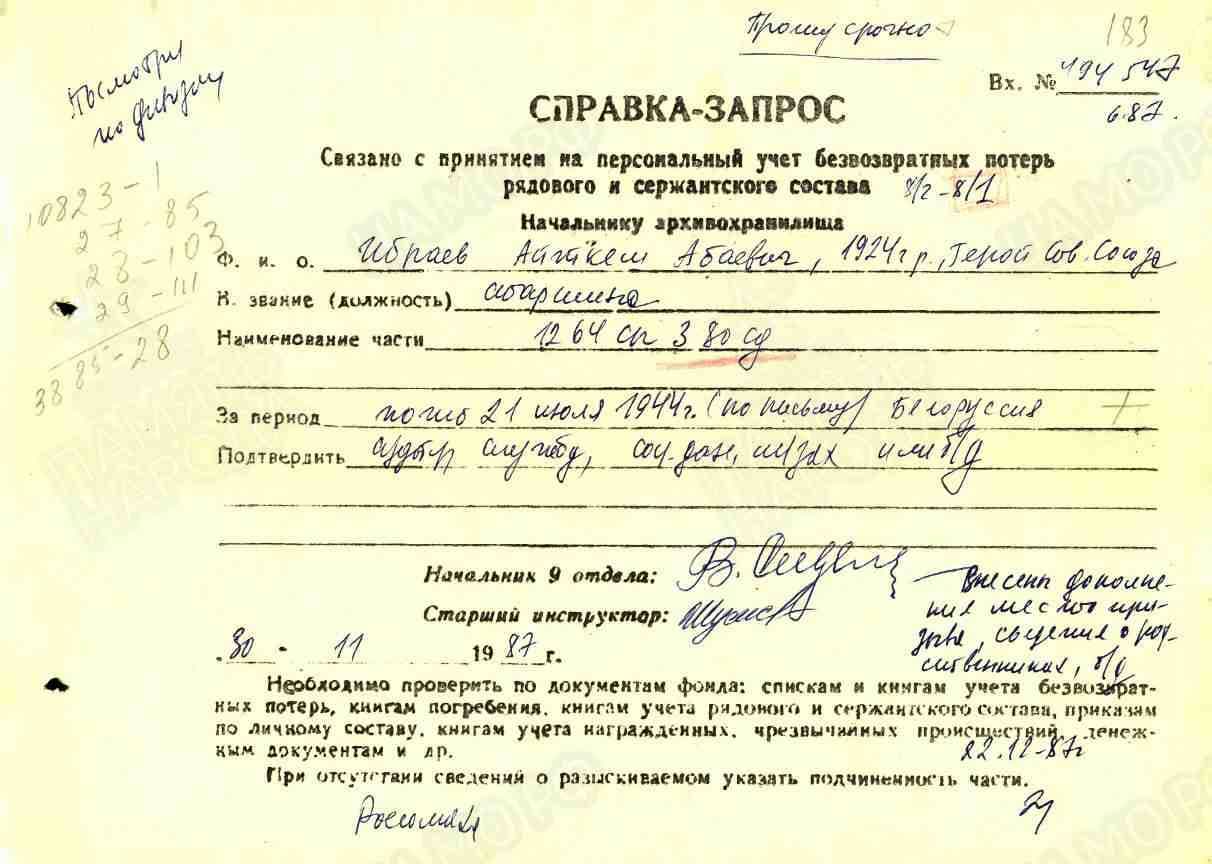 Прошу срочно
183
Посмотри
по дивизии
Вх. № 494 547
6.87.
СПРАВКА-ЗАПРОС
Связано с принятием на персональный учет безвозвратных потерь
рядового и сержантского состава 8/г-8/1
Начальнику архивохранилища
10823-1
27-85
28-103
29-111
3885-28
Ф. и. о. Ибраев Айткеш Абаевич, 1924 г р., Герой Сов. Союза
В. звание (должность) старшина
Наименование части 1264 сп 380 сд
За период погиб 21 июля 1944г. (по письму) Белоруссия
Подтвердить судьбу, службу, соц. дан, или б/д
Начальник 9 отдела:
Старший инструктор:
30 - 11 1987 г.
Внесены дополне-
ние место при-
зыва, сведения о род-
ственниках, б/д
22.12-87г
Необходимо проверить по документам фонда: спискам и книгам учета безвозврат-
ных потерь, книгам погребения, книгам учета рядового и сержантского состава, приказам
по личному составу, книгам учета награжденных, чрезвычайных происшествий, денеж-
ным документам и др.
При отсутствии сведений о разыскиваемом указать подчиненность части.